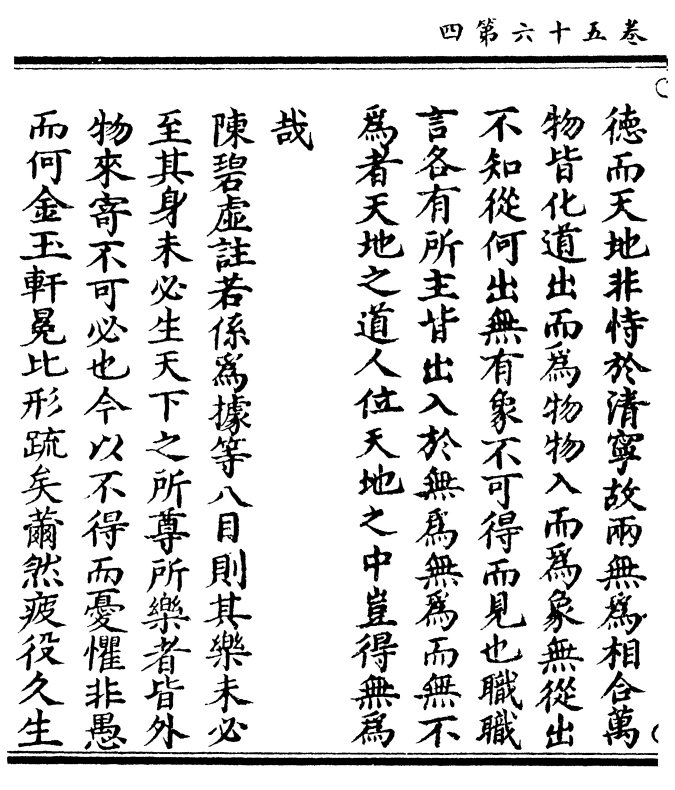 卷五十六第四
德而天地非恃於清寧故兩無為相合萬
物皆化道出而為物物入而為象無從出
不知從何出無有象不可得而見也職職
言各有所主皆出入於無為無為而無不
為者天地之道人位天地之中豈得無為
哉
陳碧虛註若係為據等八目則其樂未必
至其身未必生天下之所尊所樂者皆外
物來寄不可必也今以不得而憂懼非愚
而何金玉軒冕比形疏矣薾然疲役久生